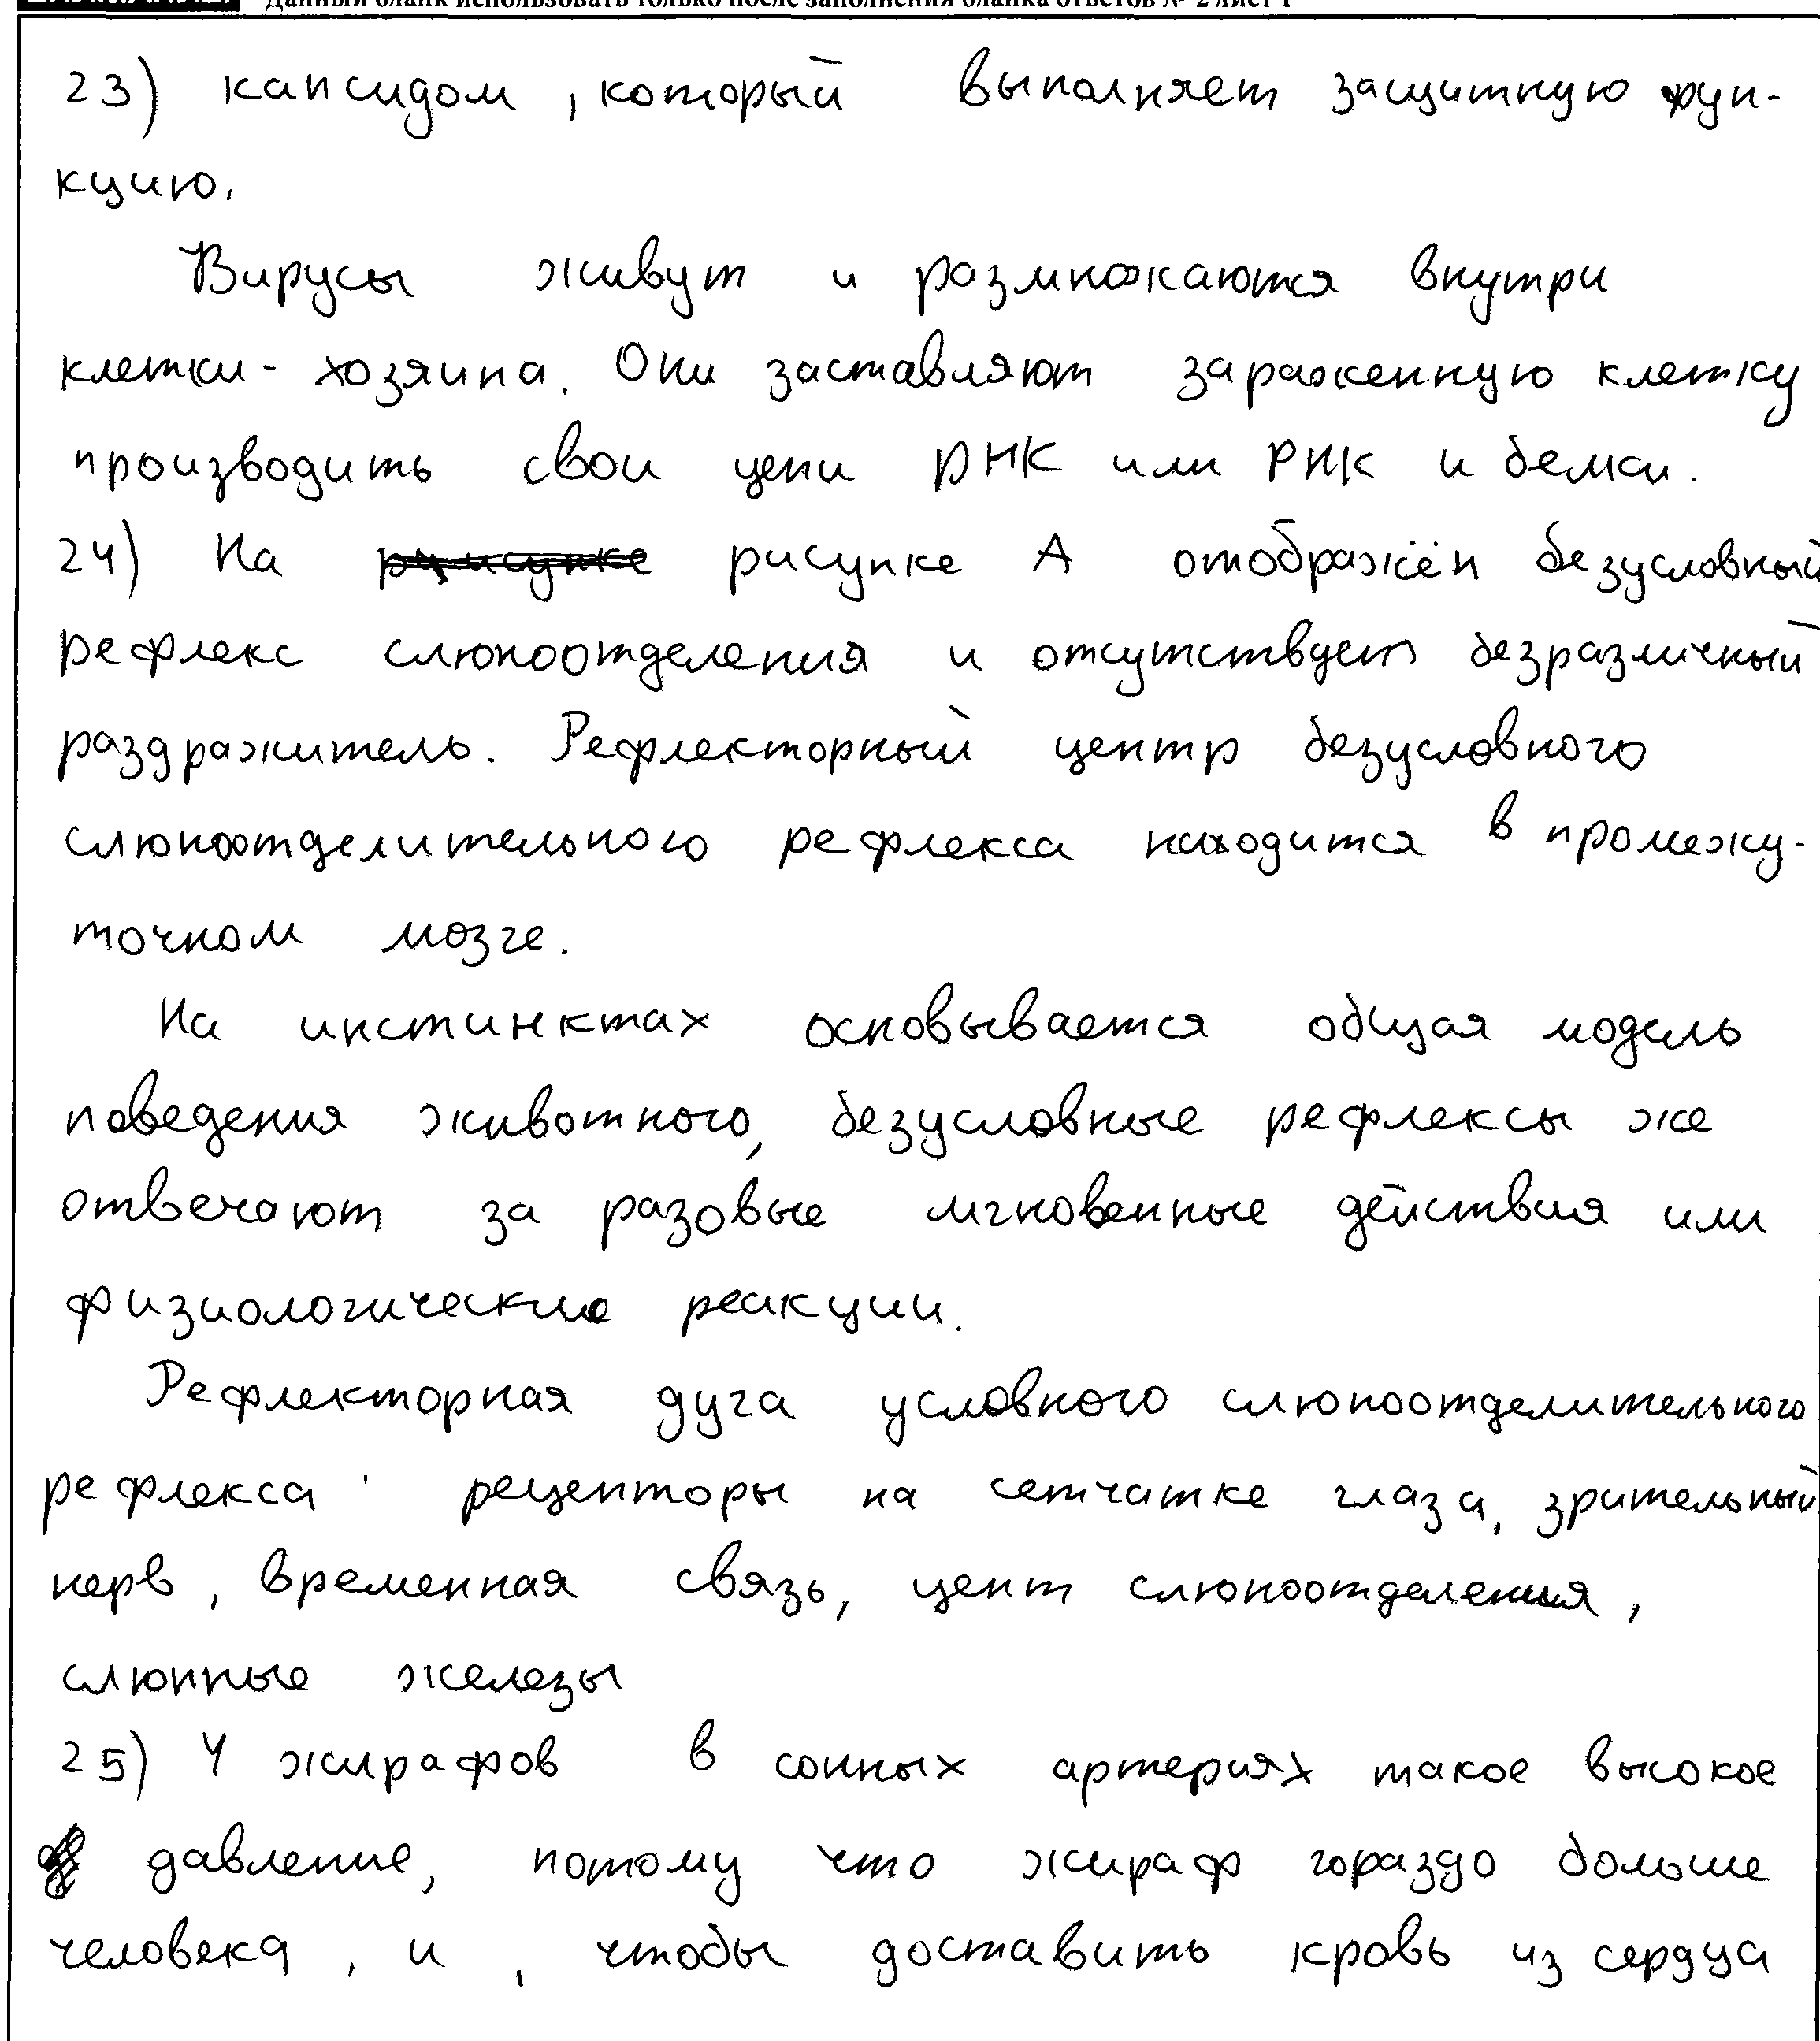 Данный бланк использовать только после заполнения бланка ответов № 2 лист 1
23) капсидом, который выполняет защитную фун-
кцию.
Вирусы живут и размножаются внутри
клетки-хозяина. Они заставляют зараженную клетку
производить свои цепи РНК или РНК и белки.
24) На рисунке А отображён безусловный
рефлекс слюноотделения и отсутствует безразличный
раздражитель. Рефлекторный центр безусловного
слюноотделительного рефлекса находится в промежу-
точном мозге.
На инстинктах основывается общая модель
поведения животного, безусловные рефлексы же
отвечают за разовые мгновенные действия или
физиологические реакции.
Рефлекторная дуга условного слюноотделительного
рефлекса: рецепторы на сетчатке глаза, зрительный
нерв, временная связь, цент слюноотделения,
слюнные железы
25) У жирафов в сонных артериях такое высокое
давление, потому что жираф гораздо больше
человека, и, чтобы доставить кровь из сердца